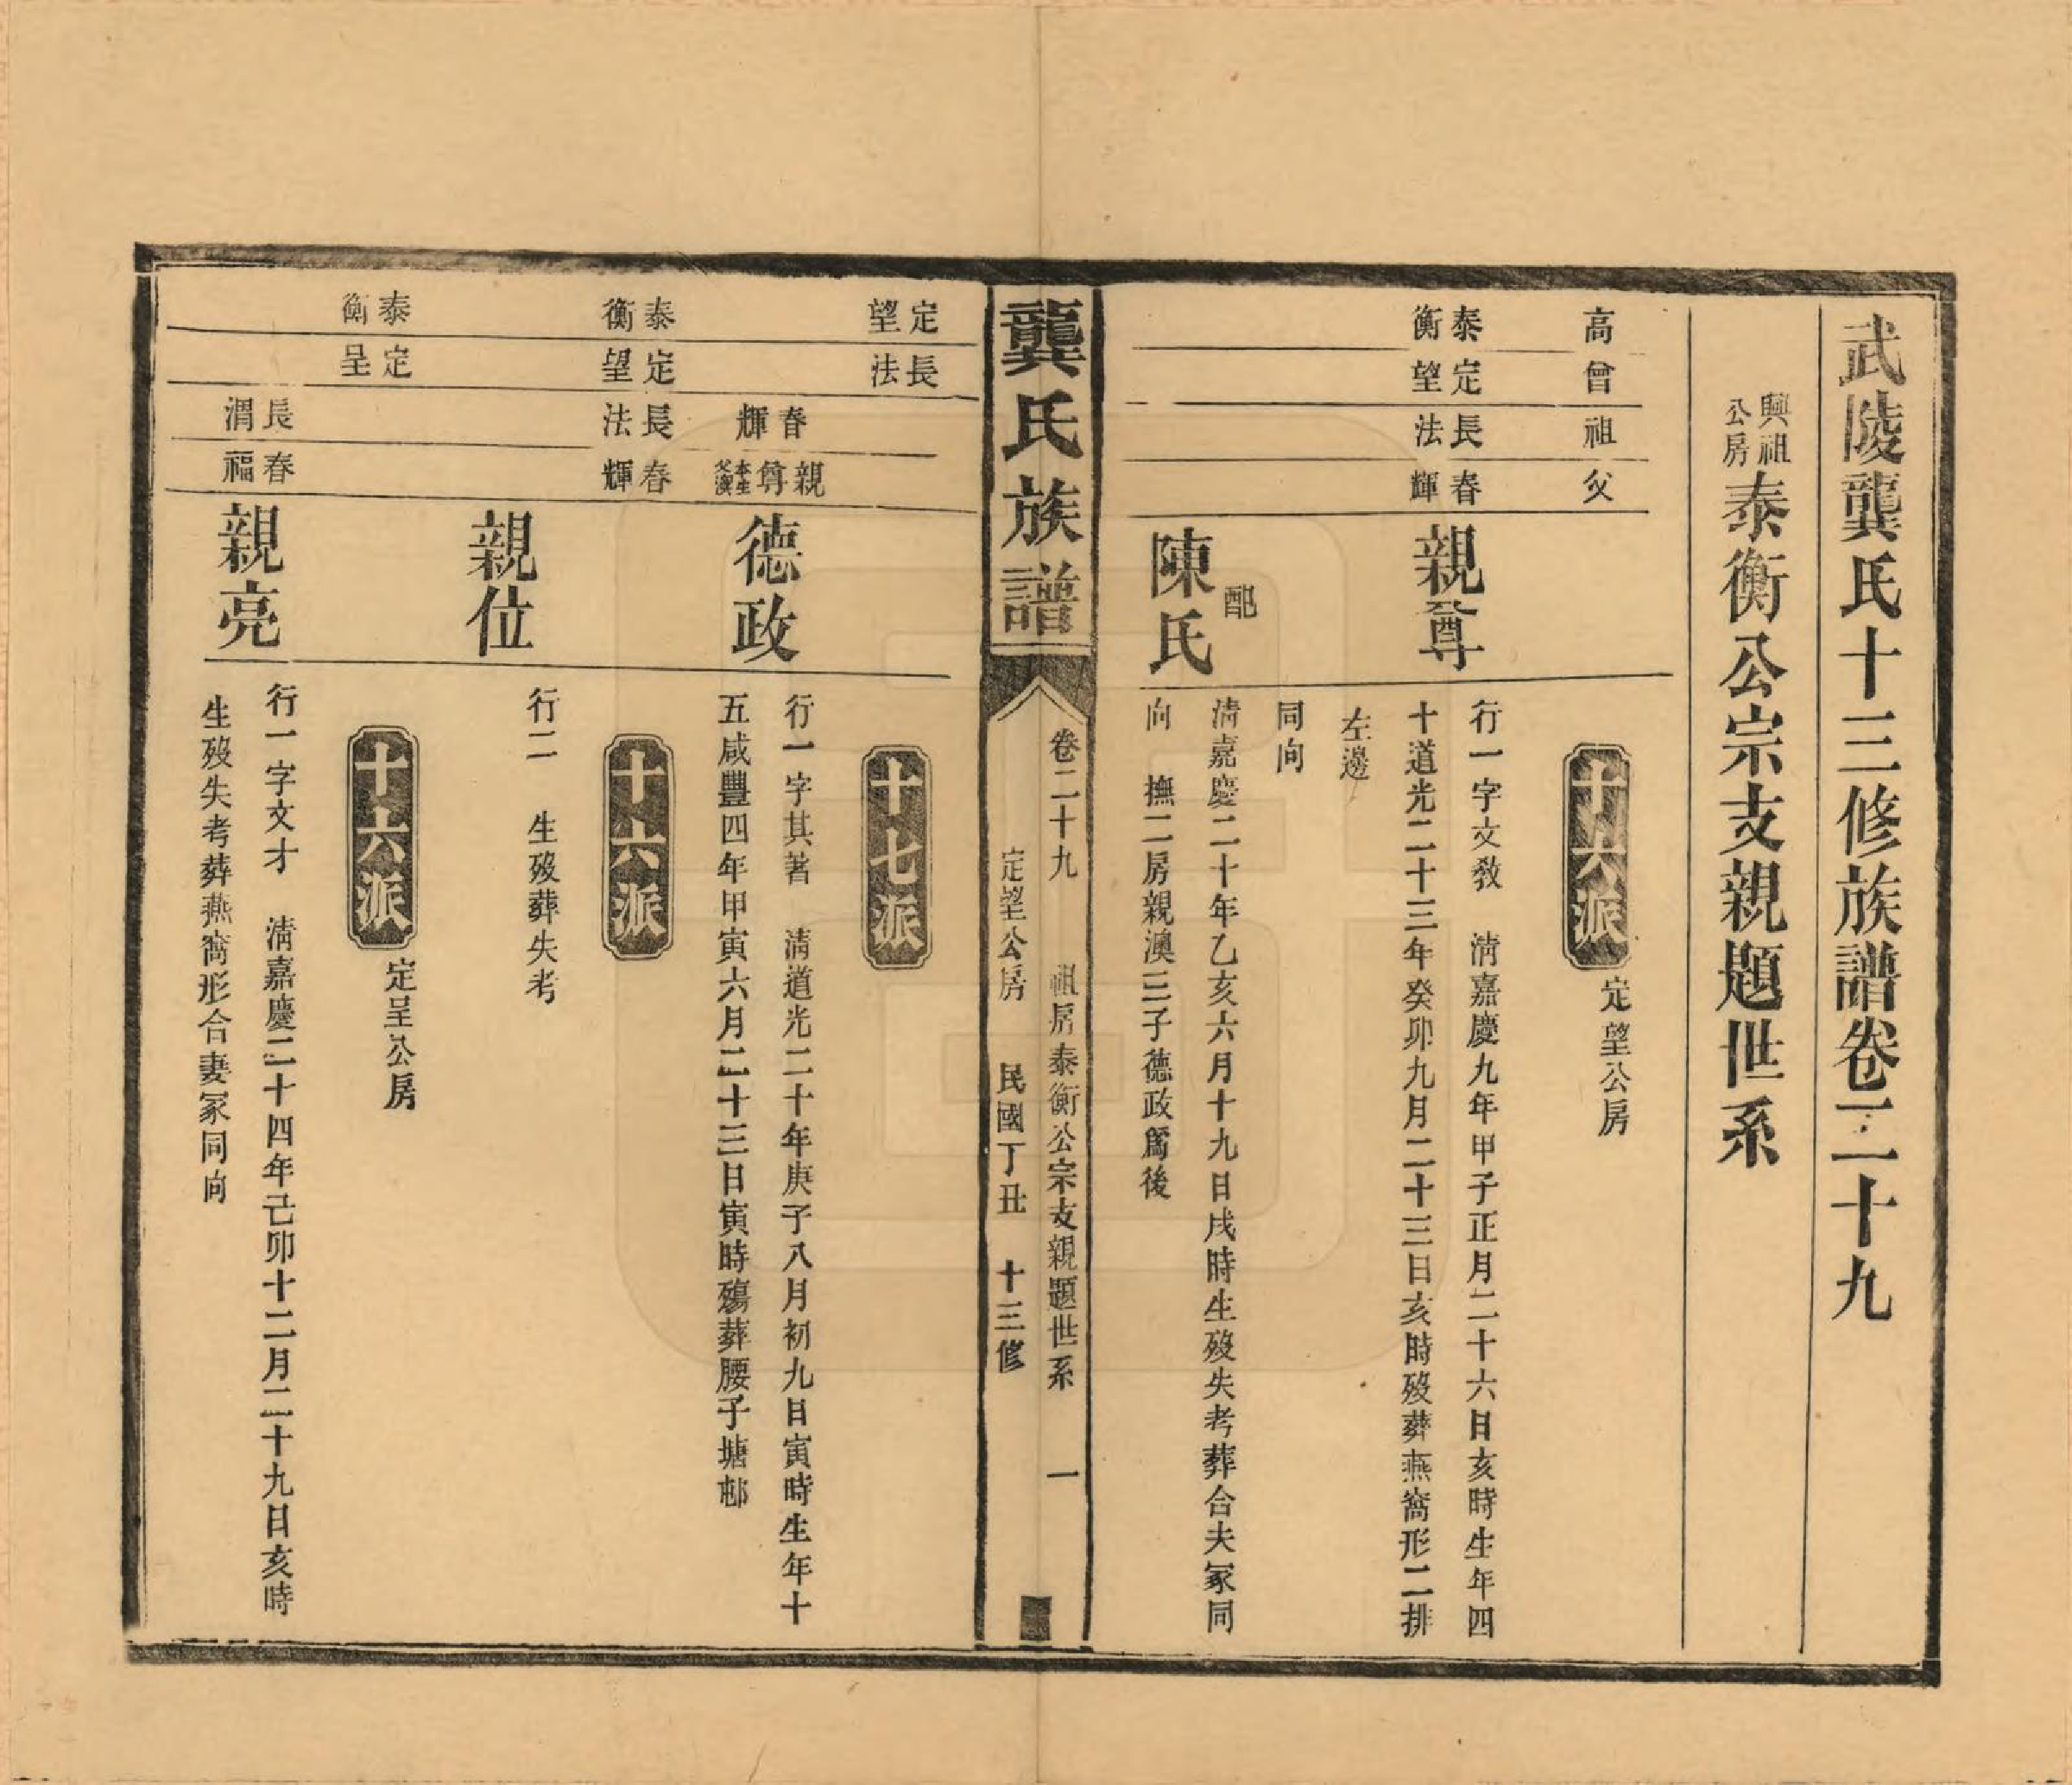 武陵龔氏十三修族譜卷二十九
興祖公房泰衡公宗支親題世系
高
曾
祖
父
十六派 定望公房
泰衡
定望
長法
春輝
親尊
行一字文教 清嘉慶九年甲子正月二十六日亥時生年四
十道光二十三年癸卯九月二十三日亥時歿葬燕窩形二排
左邊
同向
配
陳氏
清嘉慶二十年乙亥六月十九日戌時生歿失考葬合夫冢同
向 撫二房親澳三子德政爲後
龔氏族譜
卷二十九 祖房泰衡公宗支親題世系 一
定望公房 民國丁丑 十三修
定望
長法
十七派
春輝
親尊
本生父澳
德政
行一字其著 清道光二十年庚子八月初九日寅時生年十
五咸豐四年甲寅六月二十三日寅時殤葬腰子塘邨
泰衡
定望
長法
春輝
十六派
親位
行二 生歿葬失考
泰衡
定呈
十六派 定呈公房
長渭
春福
親亮
行一字文才 清嘉慶二十四年己卯十二月二十九日亥時
生歿失考葬燕窩形合妻冢同向